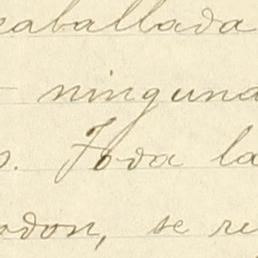 caballada
ninguna
Toda la
se re